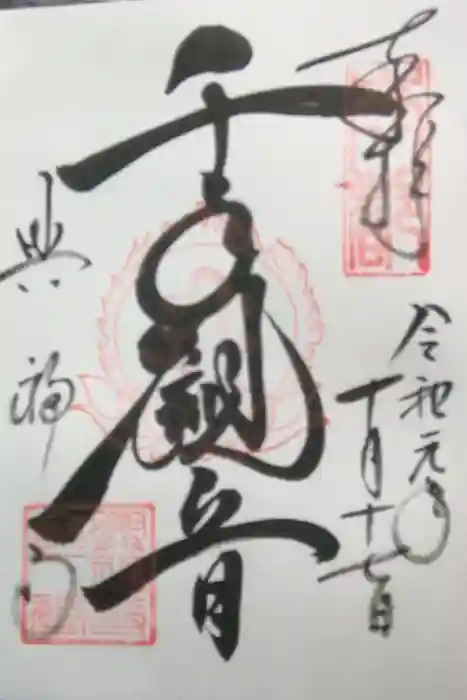 奉拝
令和元年
十月十七日
千手観音
興福寺